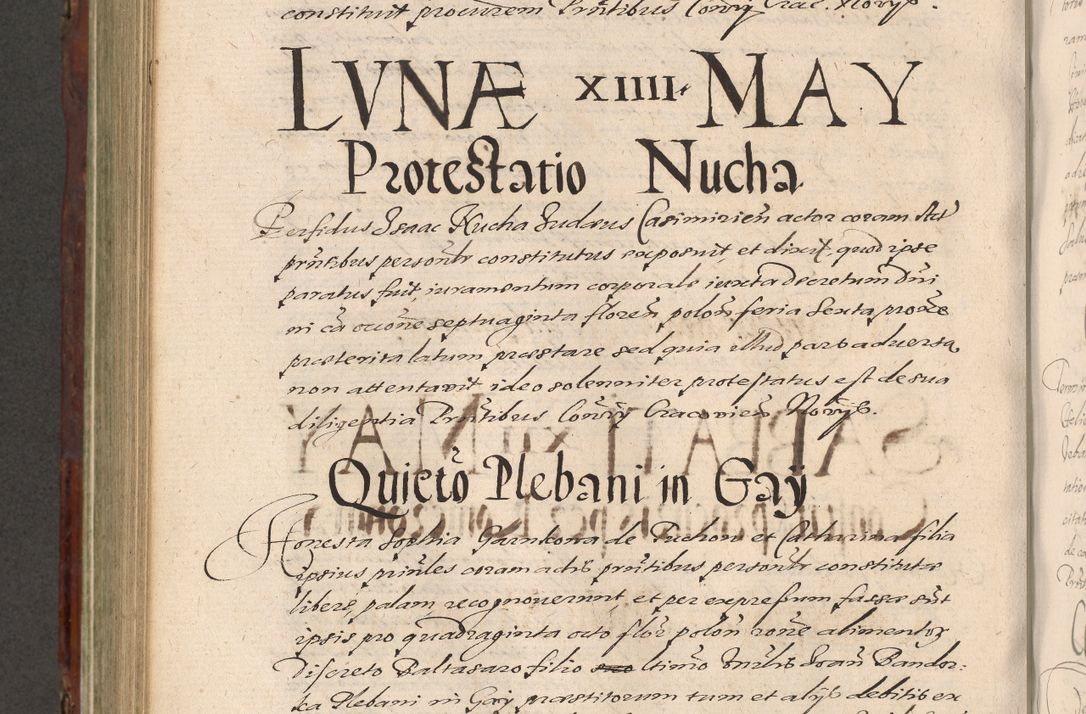 constituit procurem Prntibus Conry Crac. Novys.
LVNÆ XIIII. MAY
Protestatio Nucha
Perfidus Isaac Nucha Iudæus Casimirien actor coram Act
prntibus personlr constitutus exposuit, et dixit, quod ipse
paratus fuit, iuramentum corporale iuxta decretum Dni
in ca occone septuaginta floren polon feria sexta proxe
præterita latum præstare sed quia illud pars adversa
non attentavit ideo solenniter protestatus est de sua
diligentia Prntibus Conry Cracovien Novys.
Quietō Plebani in Gaÿ
Honesta Sophia Garnkowa de Pichow et Catharina filia
ipsius prinles coram actis prntibus personlr constitutæ
libere, palam, recognoverunt, et per expressum fassæ sūt
ipsis pro quadraginta octo flor polon rone alimentor
Discreto Baltasaro filio ltimo Joan Bandor:
ka Plebani in Gay præstitorum tum et alijs debitis ex